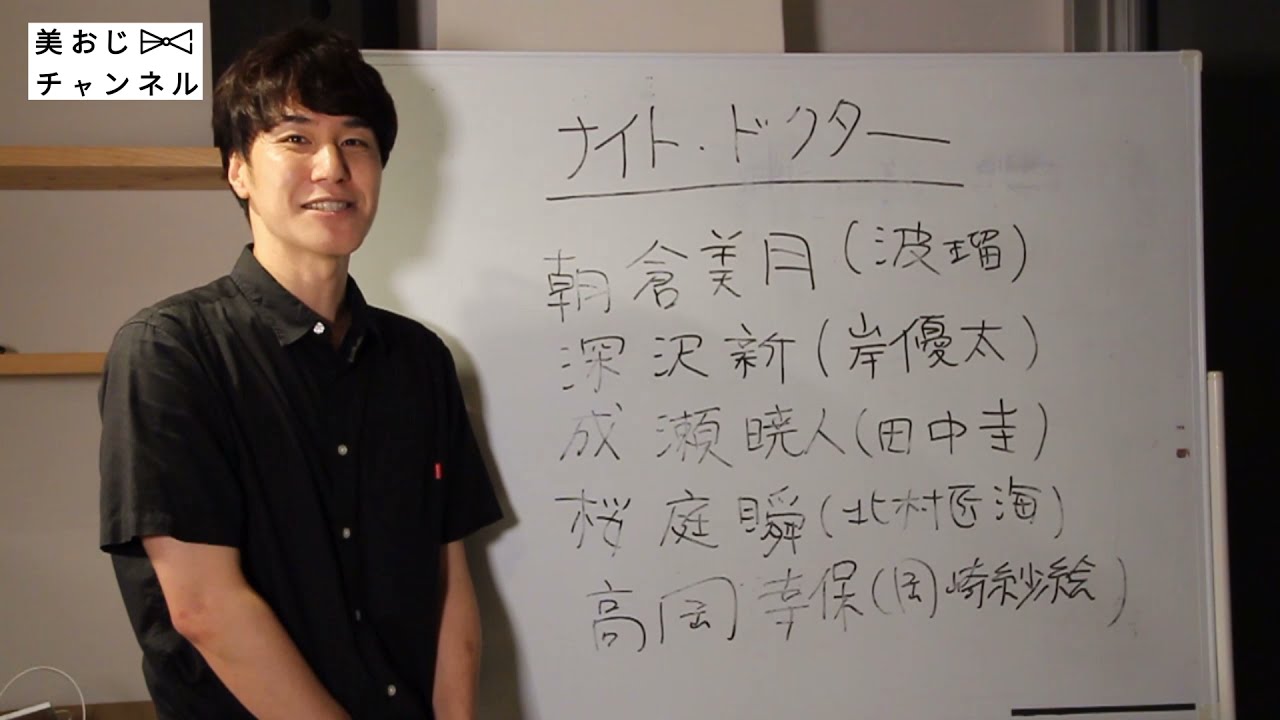 美おじ
チャンネル
ナイト・ドクター
朝倉美月(波瑠)
深沢新(岸優太)
成瀬暁人(田中圭)
桜庭瞬(北村匠海)
高岡幸保(岡崎紗絵)